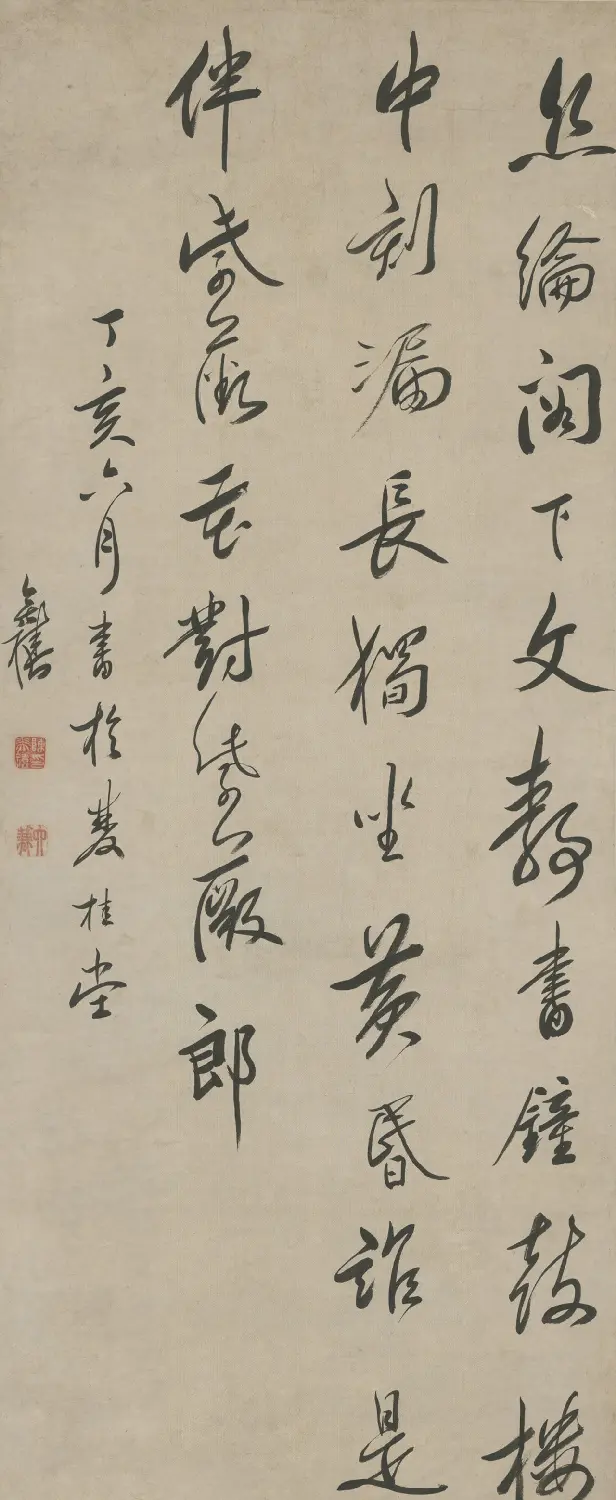 絲綸閣下文靜書鐘鼓樓
中刻漏長獨坐黃昏誰是
伴紫薇花對紫薇郎
丁亥六月書於雙桂堂